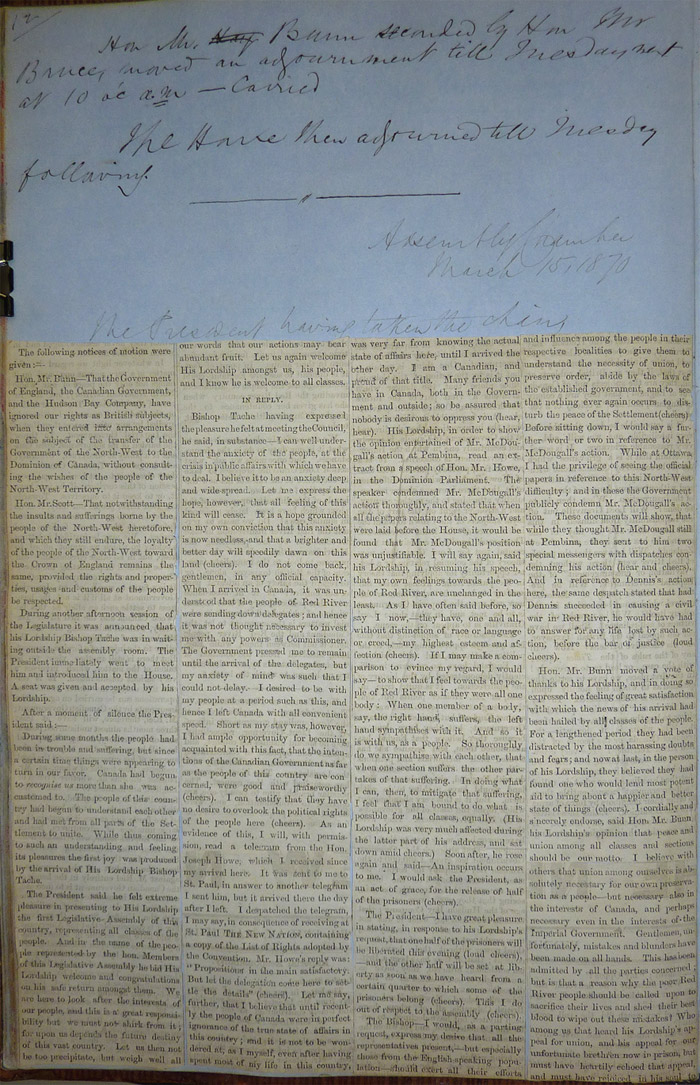 12
Hon Mr. Bunn seconded by Hon Mr
Bruce, moved an adjournment till Tuesday next
at 10 oc a.m — Carried
The House then adjourned till Tuesday
following.
Assembly Chamber
March 15, 1870
The President having taken the chair
The following notices of motion were
given:—
Hon. Mr. Bunn—That the Government
of England, the Canadian Government,
and the Hudson Bay Company, have
ignored our rights as British subjects,
when they entered into arrangements
on the subject of the transfer of the
Government of the North-West to the
Dominion of Canada, without consult-
ing the wishes of the people of the
North-West Territory.
Hon. Mr. Scott—That notwithstanding
the insults and sufferings borne by the
people of the North-West heretofore,
and which they still endure, the loyalty
of the people of the North-West toward
the Crown of England remains the
same, provided the rights and proper-
ties, usages and customs of the people
be respected.
During another afternoon session of
the Legislature it was announced that
his Lordship Bishop Tache was in wait-
ing outside the assembly room. The
President immediately went to meet
him and introduced him to the House.
A seat was given and accepted by his
Lordship.
After a moment of silence the Pres-
ident said:—
During some months the people had
been in trouble and suffering, but since
a certain time things were appearing to
turn in our favor. Canada had begun
to recognise us more than she was ac-
customed to. The people of this coun-
try had begun to understand each other
and had met from all parts of the Set-
tlement to unite. While thus coming
to such an understanding and feeling
its pleasures the first joy was produced
by the arrival of His Lordship Bishop
Tache.
The President said he felt extreme
pleasure in presenting to His Lordship
the first Legislative Assembly of this
country, representing all classes of the
people. And in the name of the peo-
ple represented by the hon. Members
of this Legislative Assembly he bid His
Lordship welcome and congratulations
on his safe return amongst them. We
are here to look after the interests of
our people, and this is a great responsi-
bility but we must not shirk from it;
for upon us depends the future destiny
of this vast country. Let us then not
be too precipitate, but weigh well all
our words that our actions may bear
abundant fruit. Let us again welcome
His Lordship amongst us, his people,
and I know he is welcome to all classes.
IN REPLY.
Bishop Tache having expressed
the pleasure he felt at meeting the Council,
he said, in substance—I can well under-
stand the anxiety of the people, at the
crisis in public affairs with which we have
to deal. I believe it to be an anxiety deep
and wide-spread. Let me express the
hope, however, that all feeling of this
kind will cease. It is a hope grounded
on my own conviction that this anxiety
is now needless, and that a brighter and
better day will speedily dawn on this
land (cheers). I do not come back,
gentlemen, in any official capacity.
When I arrived in Canada, it was un-
derstood that the people of Red River
were sending down delegates; and hence
it was not thought necessary to invest
me with any powers as Commissioner.
The Government pressed me to remain
until the arrival of the delegates, but
my anxiety of mind was such that I
could not delay. I desired to be with
my people at a period such as this, and
hence I left Canada with all convenient
speed. Short as my stay was, however,
I had ample opportunity for becoming
acquainted with fact, that the inten-
tions of the Canadian Government as far
as the people of this country are con-
cerned, were good and praiseworthy
(cheers). I can testify that they have
no desire to overlook the political rights
of the people here (cheers). As an
evidence of this, I will, with permis-
sion, read a telegram from the Hon.
Joseph Howe, which I received since
my arrival here. It was sent to me to
St. Paul, in answer to another telegram
I sent him, but it arrived there the day
after I left. I despatched the telegram,
I may say, in consequence of receiving at
St. Paul THE NEW NATION, containing
a copy of the List of Rights adopted by
the Convention. Mr. Howe's reply was:
"Propositions in the main satisfactory.
But let the delegation come here to set-
tle the details" (cheers). Let me say,
further, that I believe that until recent-
ly the people of Canada were in perfect
ignorance of the true state of affairs in
this country; and it is not to be won-
dered at, as I myself, even after having
spent most of my life in this country,
was very far from knowing the actual
state of affairs here, until I arrived the
other day. I am a Canadian, and
proud of that title. Many friends you
have in Canada, both in the Govern-
ment and outside; so be assured that
nobody is desirous to oppress you (hear,
hear). His Lordship, in order to show
the opinion entertained of Mr. McDou-
gall's action at Pembina, read an ex-
tract from a speech of Hon. Mr. Howe,
in the Dominion Parliament. The
speaker condemned Mr. McDougall's
action thoroughly, and stated that when
all the papers relating to the North-West
were laid before the House, it would be
found that Mr. McDougall's position
was unjustifiable. I will say again, said
his Lordship, in resuming his speech,
that my own feelings towards the peo-
ple of Red River, are unchanged in the
least. As I have often said before, so
say I now,—they have, one and all,
without distinction of race or language
or creed,—my highest esteem and af-
fection (cheers). If I may make a com-
parison to evince my regard, I would
say—to show that I feel towards the peo-
ple of Red River as if they were all one
body: When one member of a body,
say, the right hand, suffers, the left
hand sympathises with it. And so it
is with us, as a people. So thoroughly
do we sympathise with each other, that
when one section suffers the other par-
takes of that suffering. In doing what
I can, then, to mitigate that suffering,
I feel that I am bound to do what is
possible for all classes, equally. (His
Lordship was very much affected during
the latter part of his address, and sat
down amid cheers.) Soon after, he rose
again and said—An inspiration occurs
to me. I would ask the President, as
an act of grace, for the release of half
of the prisoners (cheers).
The President—I have great pleasure
in stating, in response to his Lordship's
request, that one half of the prisoners will
be liberated this evening (loud cheers),
—and the other half will be set at lib-
erty as soon as we have heard from a
certain quarter to which some of the
prisoners belong (cheers). This I do
out of respect to the assembly (cheers).
The Bishop—I would, as a parting
request, express my desire that all the
representatives present,—but especially
those from the English-speaking popu-
lation—should exert all their efforts
and influence among the people in their
respective localities to give them to
understand the necessity of union, to
preserve order, abide by the laws of
the established government, and to see
that nothing ever again occurs to dis-
turb the peace of the Settlement (cheers)
Before sitting down, I would say a fur-
ther word or two in reference to Mr.
McDougall's action. While at Ottawa
I had the privilege of seeing the official
papers in reference to this North-West
difficulty; and in these the Government
publicly condemn Mr. McDougall's ac-
tion. These documents will show, that
while they thought Mr. McDougall still
at Pembina, they sent to him two
special messengers with dispatches con-
demning his action (hear and cheers).
And in reference to Dennis's action
here, the same despatch stated that had
Dennis succeeded in causing a civil
war in Red River, he would have had
to answer for any life lost by such ac-
tion, before the bar of justice (loud
cheers).
Hon. Mr. Bunn moved a vote of
thanks to his Lordship, and in doing so
expressed the feeling of great satisfaction
with which the news of his arrival had
been hailed by all classes of the people.
For a lengthened period they had been
distracted by the most harassing doubts
and fears; and now at last, in the person
of his Lordship, they believed they had
found one who would lend most potent
aid to bring about a happier and better
state of things (cheers). I cordially and
sincerely endorse, said Hon. Mr. Bunn
his Lordship's opinion that peace and
union among all classes and sections
should be our motto. I believe with
others that union among ourselves is ab-
solutely necessary for our own preserva-
tion as a people—but necessary also in
the interests of Canada, and perhaps
necessary even in the interests of the
Imperial Government. Gentlemen, un-
fortunately, mistakes and blunders have
been made on all hands. This has been
admitted by all the parties concerned,
but is that a reason why the poor Red
River people should be called upon to
sacrifice their lives and shed their best
blood to wipe out these mistakes? Who
among us that heard his Lordship's ap-
peal for union, and his appeal for our
unfortunate brethren now in prison, but
must have heartily echoed that appeal
and must have rejoiced in his soul